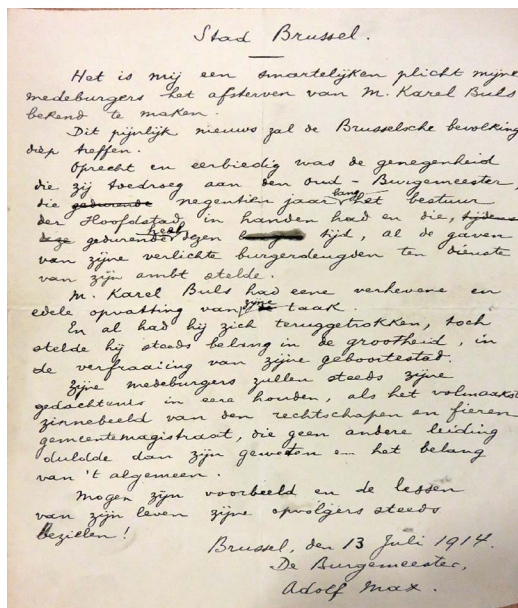 Stad Brussel.
Het is mij een smartelijken plicht mijne
medeburgers het afsterven van M. Karel Buls
bekend te maken.
Dit pijnlijk nieuws zal de Brusselsche bevolking
diep treffen.
Oprecht en eerbiedig was de genegenheid
die zij toedroeg aan den oud-Burgemeester,
die gedurende negentien jaar lang het bestuur
der Hoofdstad, in handen had en die, tijdens
deze gedurende heel dezen tijd, al de gaven
van zijne verlichte burgerdeugden ten dienste
van zijn ambt stelde.
M. Karel Buls had eene verhevene en
edele opvatting van zijne taak.
En al had hij zich teruggetrokken, toch
stelde hij steeds belang in de grootheid, in
de verfraaiing van zijne geboortestad.
Zijne medeburgers zullen steeds zijne
gedachtenis in eere houden, als het volmaakst
zinnebeeld van den rechtschapen en fieren
gemeentemagistraat, die geen andere leiding
duldde dan zijn geweten en het belang
van 't algemeen.
Mogen zijn voorbeeld en de lessen
van zijn leven zijne opvolgers steeds
bezielen!
Brussel, den 13 Juli 1914.
De Burgemeester,
Adolf Max.